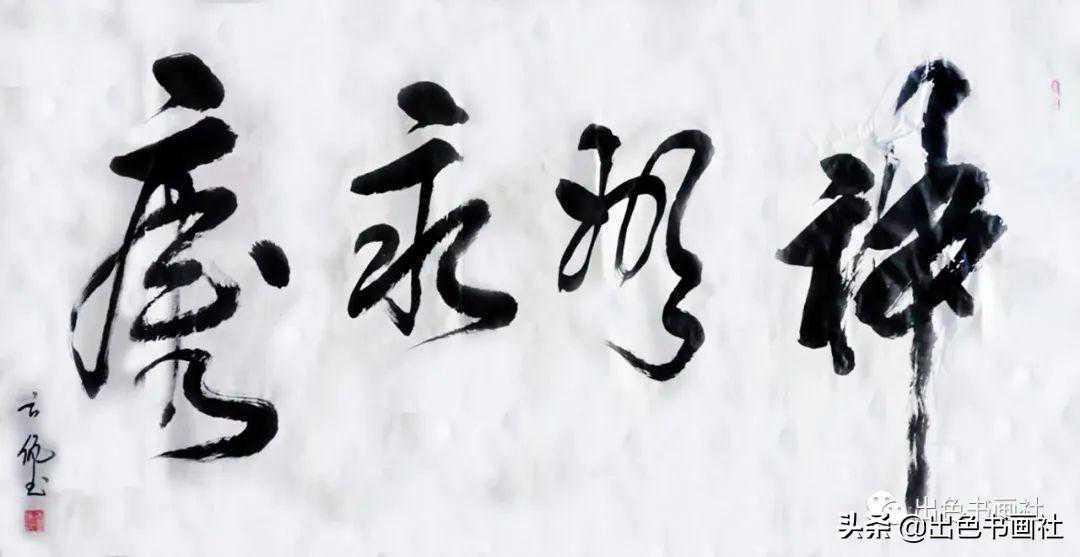 神州永慶
出色书画社
头条 @出色书画社